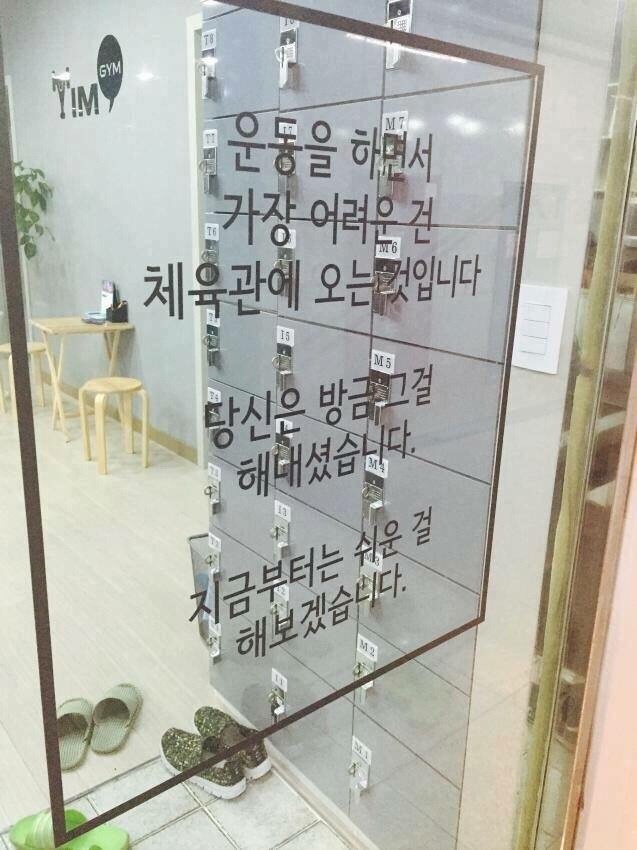 TiM
GYM
운동을 하면서
가장 어려운 건
체육관에 오는 것입니다
당신은 방금 그걸
해내셨습니다.
지금부터는 쉬운 걸
해보겠습니다.
T8
T7
T6
I7
I5
I3
I1
M7
M6
M5
M4
M3
M2
M1